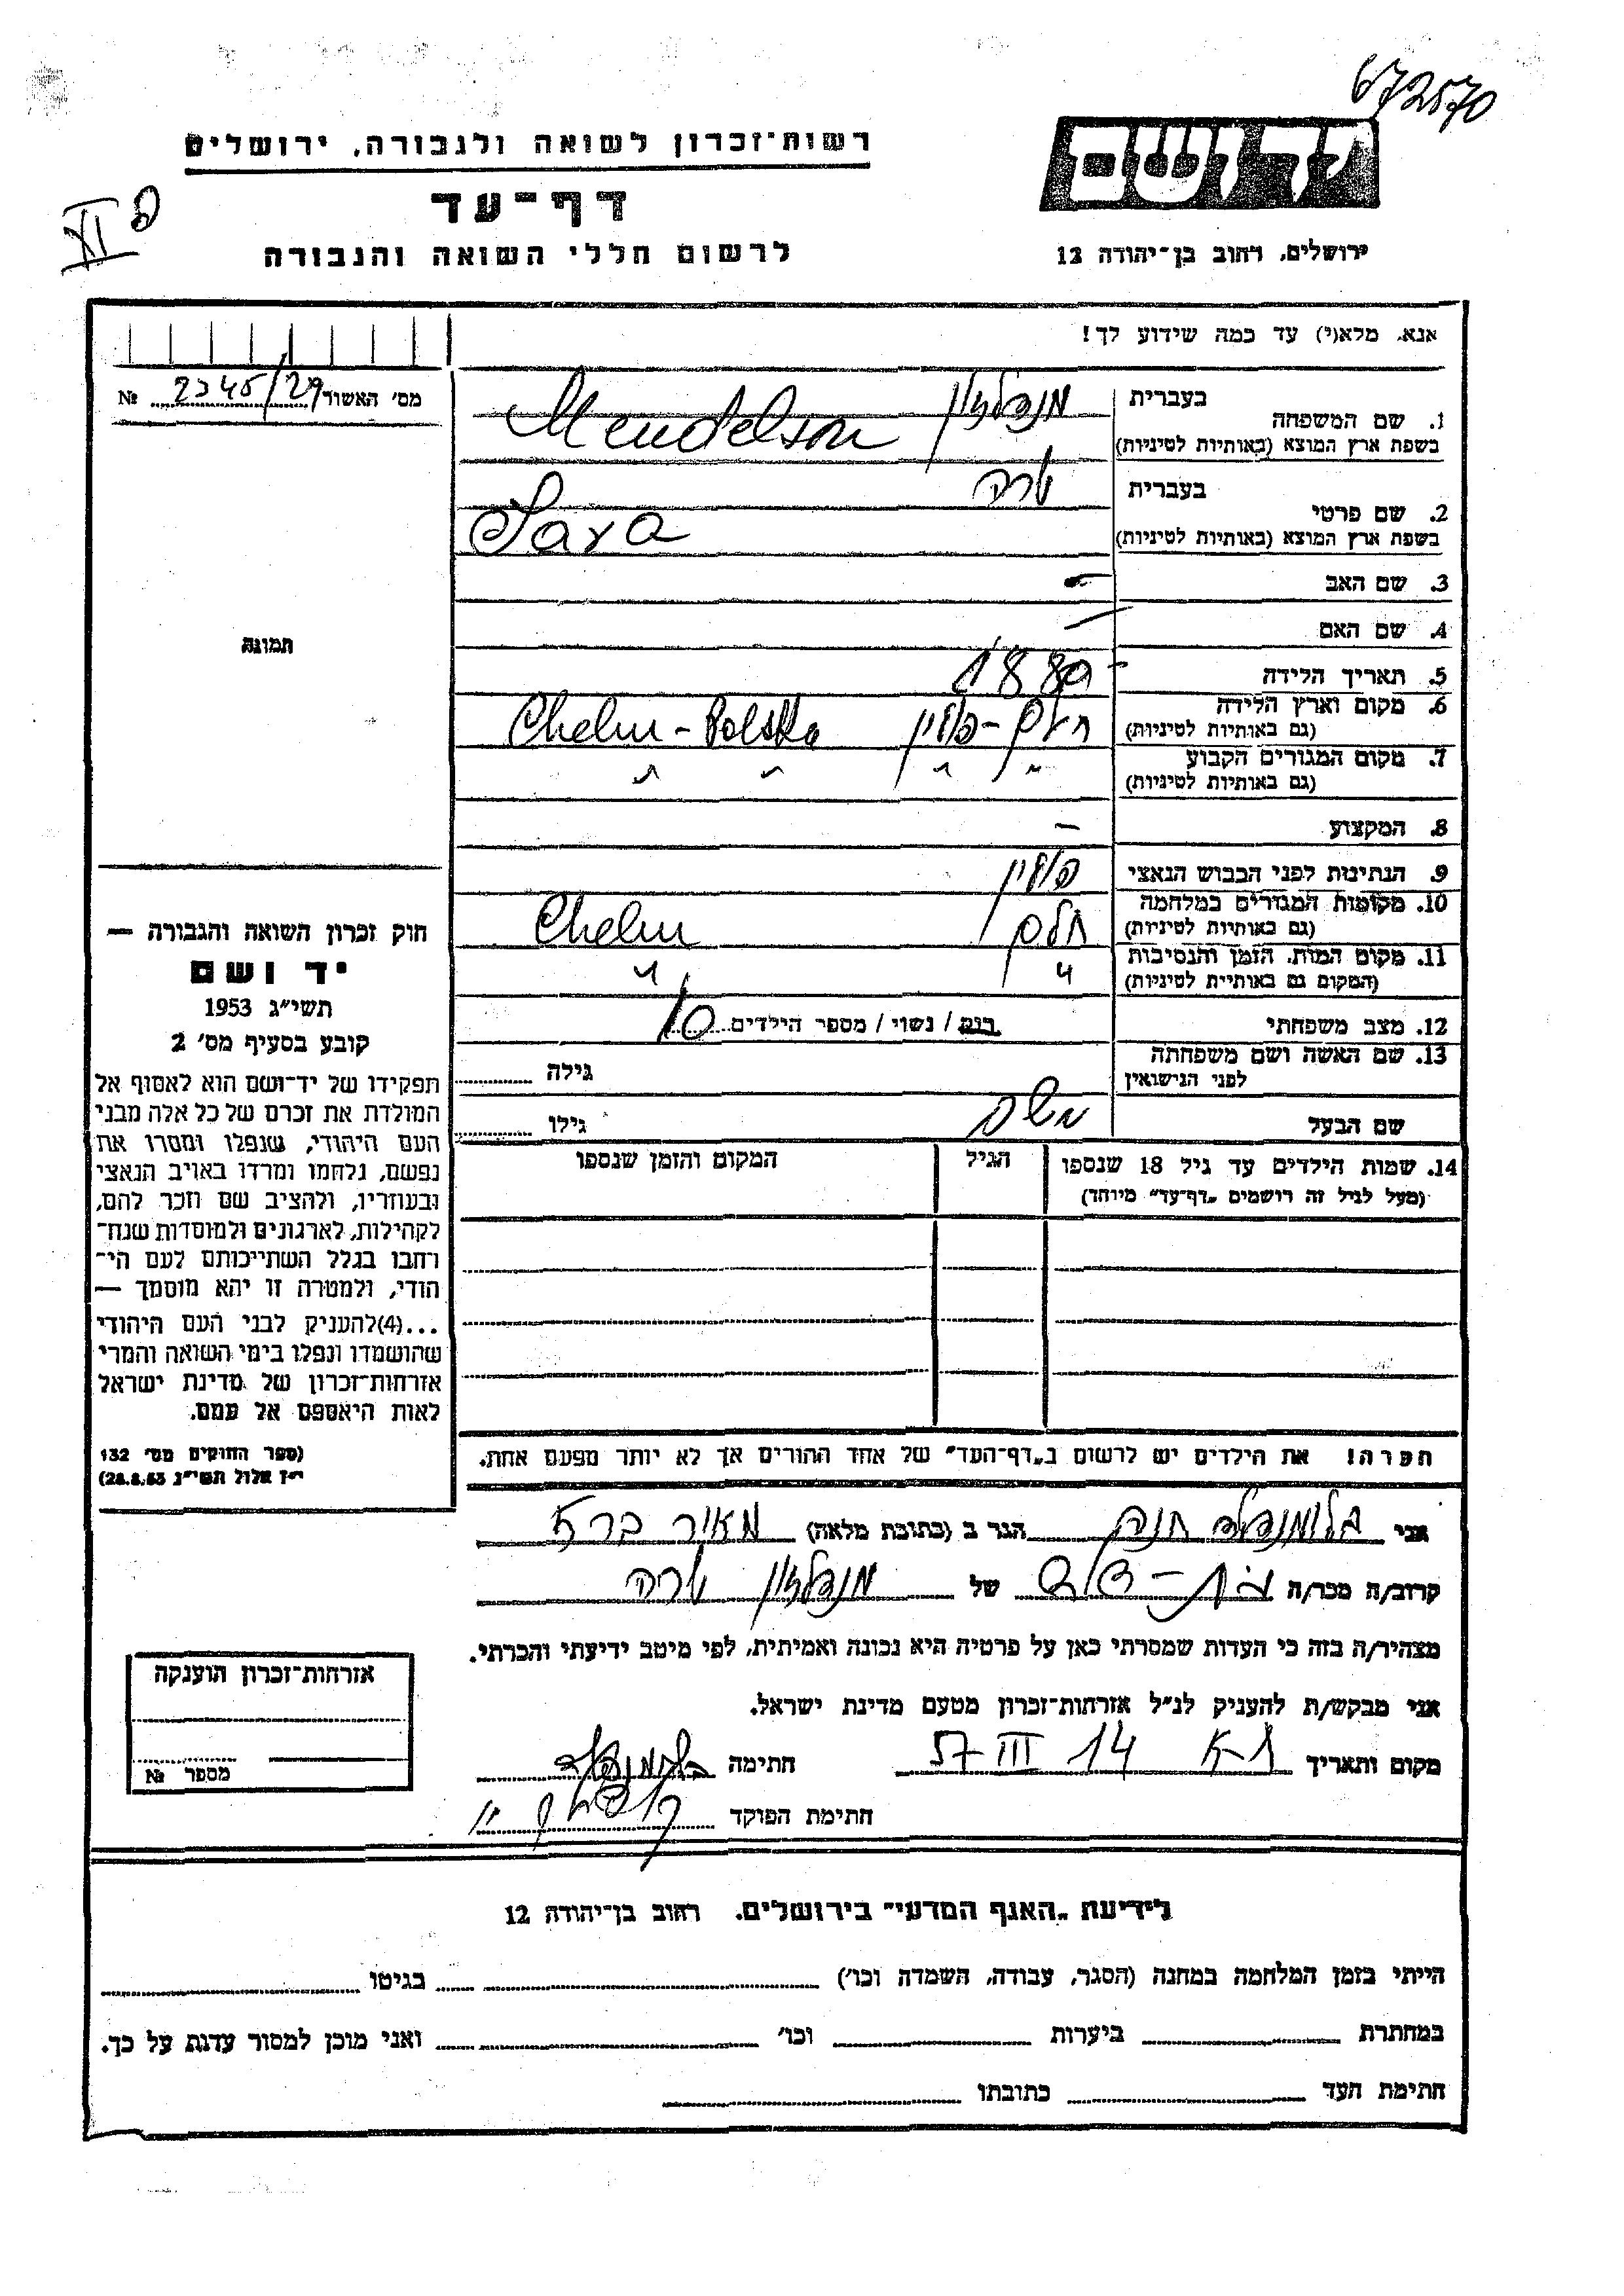 672570
יד ושם
רשות־זכרון לשואה ולגבורה, ירושלים
דף־עד
לרשום חללי השואה והגבורה
ירושלים, רחוב בן־יהודה 12
אנא, מלא(י) עד כמה שידוע לך!
מס׳ האשור 2345/29 №
1. שם המשפחה בעברית מנדלזון
בשפת ארץ המוצא (באותיות לטיניות) Mendelson
2. שם פרטי בעברית שרה
בשפת ארץ המוצא (באותיות לטיניות) Sara
3. שם האב -
4. שם האם -
תמונה
5. תאריך הלידה 1880
6. מקום וארץ הלידה (גם באותיות לטיניות) חלם - פולין Chelm - Polska
7. מקום המגורים הקבוע (גם באותיות לטיניות) " " " "
8. המקצוע -
9. הנתינות לפני הכבוש הנאצי פולין
10. מקומות המגורים במלחמה (גם באותיות לטיניות) חלם Chelm
11. מקום המות, הזמן והנסיבות (המקום גם באותיית לטיניות) " "
12. מצב משפחתי רוק / נשוי / מספר הילדים 10
13. שם האשה ושם משפחתה לפני הנישואין גילה
שם הבעל משה גילו
14. שמות הילדים עד גיל 18 שנספו הגיל המקום והזמן שנספו
(מעל לגיל זה רושמים „דף־עד” מיוחד)
חוק זכרון השואה והגבורה —
יד ושם
תשי״ג 1953
קובע בסעיף מס׳ 2
תפקידו של יד־ושם הוא לאסוף אל
המולדת את זכרם של כל אלה מבני
העם היהודי, שנפלו ומסרו את
נפשם, נלחמו ומרדו באויב הנאצי
ובעוזריו, ולהציב שם וזכר להם,
לקהילות, לארגונים ולמוסדות שנח־
רחבו בגלל השתייכותם לעם הי־
הודי, ולמטרה זו יהא מוסמך —
...(4)להעניק לבני העם היהודי
שהושמדו ונפלו בימי השואה והמרי
אזרחות־זכרון של מדינת ישראל
לאות היאספם אל עמם.
(ספר החוקים מס׳ 132
י״ז אלול תשי״ג 28.8.53)
הערה! את הילדים יש לרשום ב„דף־העד” של אחד ההורים אך לא יותר מפעם אחת.
אני בלומנפלד חנה הגר ב (כתובת מלאה)
קרוב/ה מכר/ה של מנדלזון שרה
מצהיר/ה בזה כי העדות שמסרתי כאן על פרטיה היא נכונה ואמיתית, לפי מיטב ידיעתי והכרתי.
אני מבקש/ת להעניק לנ״ל אזרחות־זכרון מטעם מדינת ישראל.
מקום ותאריך ת-א 14 III 57 חתימה
חתימת הפוקד
אזרחות־זכרון הוענקה
מספר №
לידיעת „האגף המדעי” בירושלים, רחוב בן־יהודה 12
הייתי בזמן המלחמה במחנה (הסגר, עבודה, השמדה וכו׳) בגיטו
במחתרת ביערות וכו׳ ואני מוכן למסור עדות על כך.
חתימת העד כתובתו